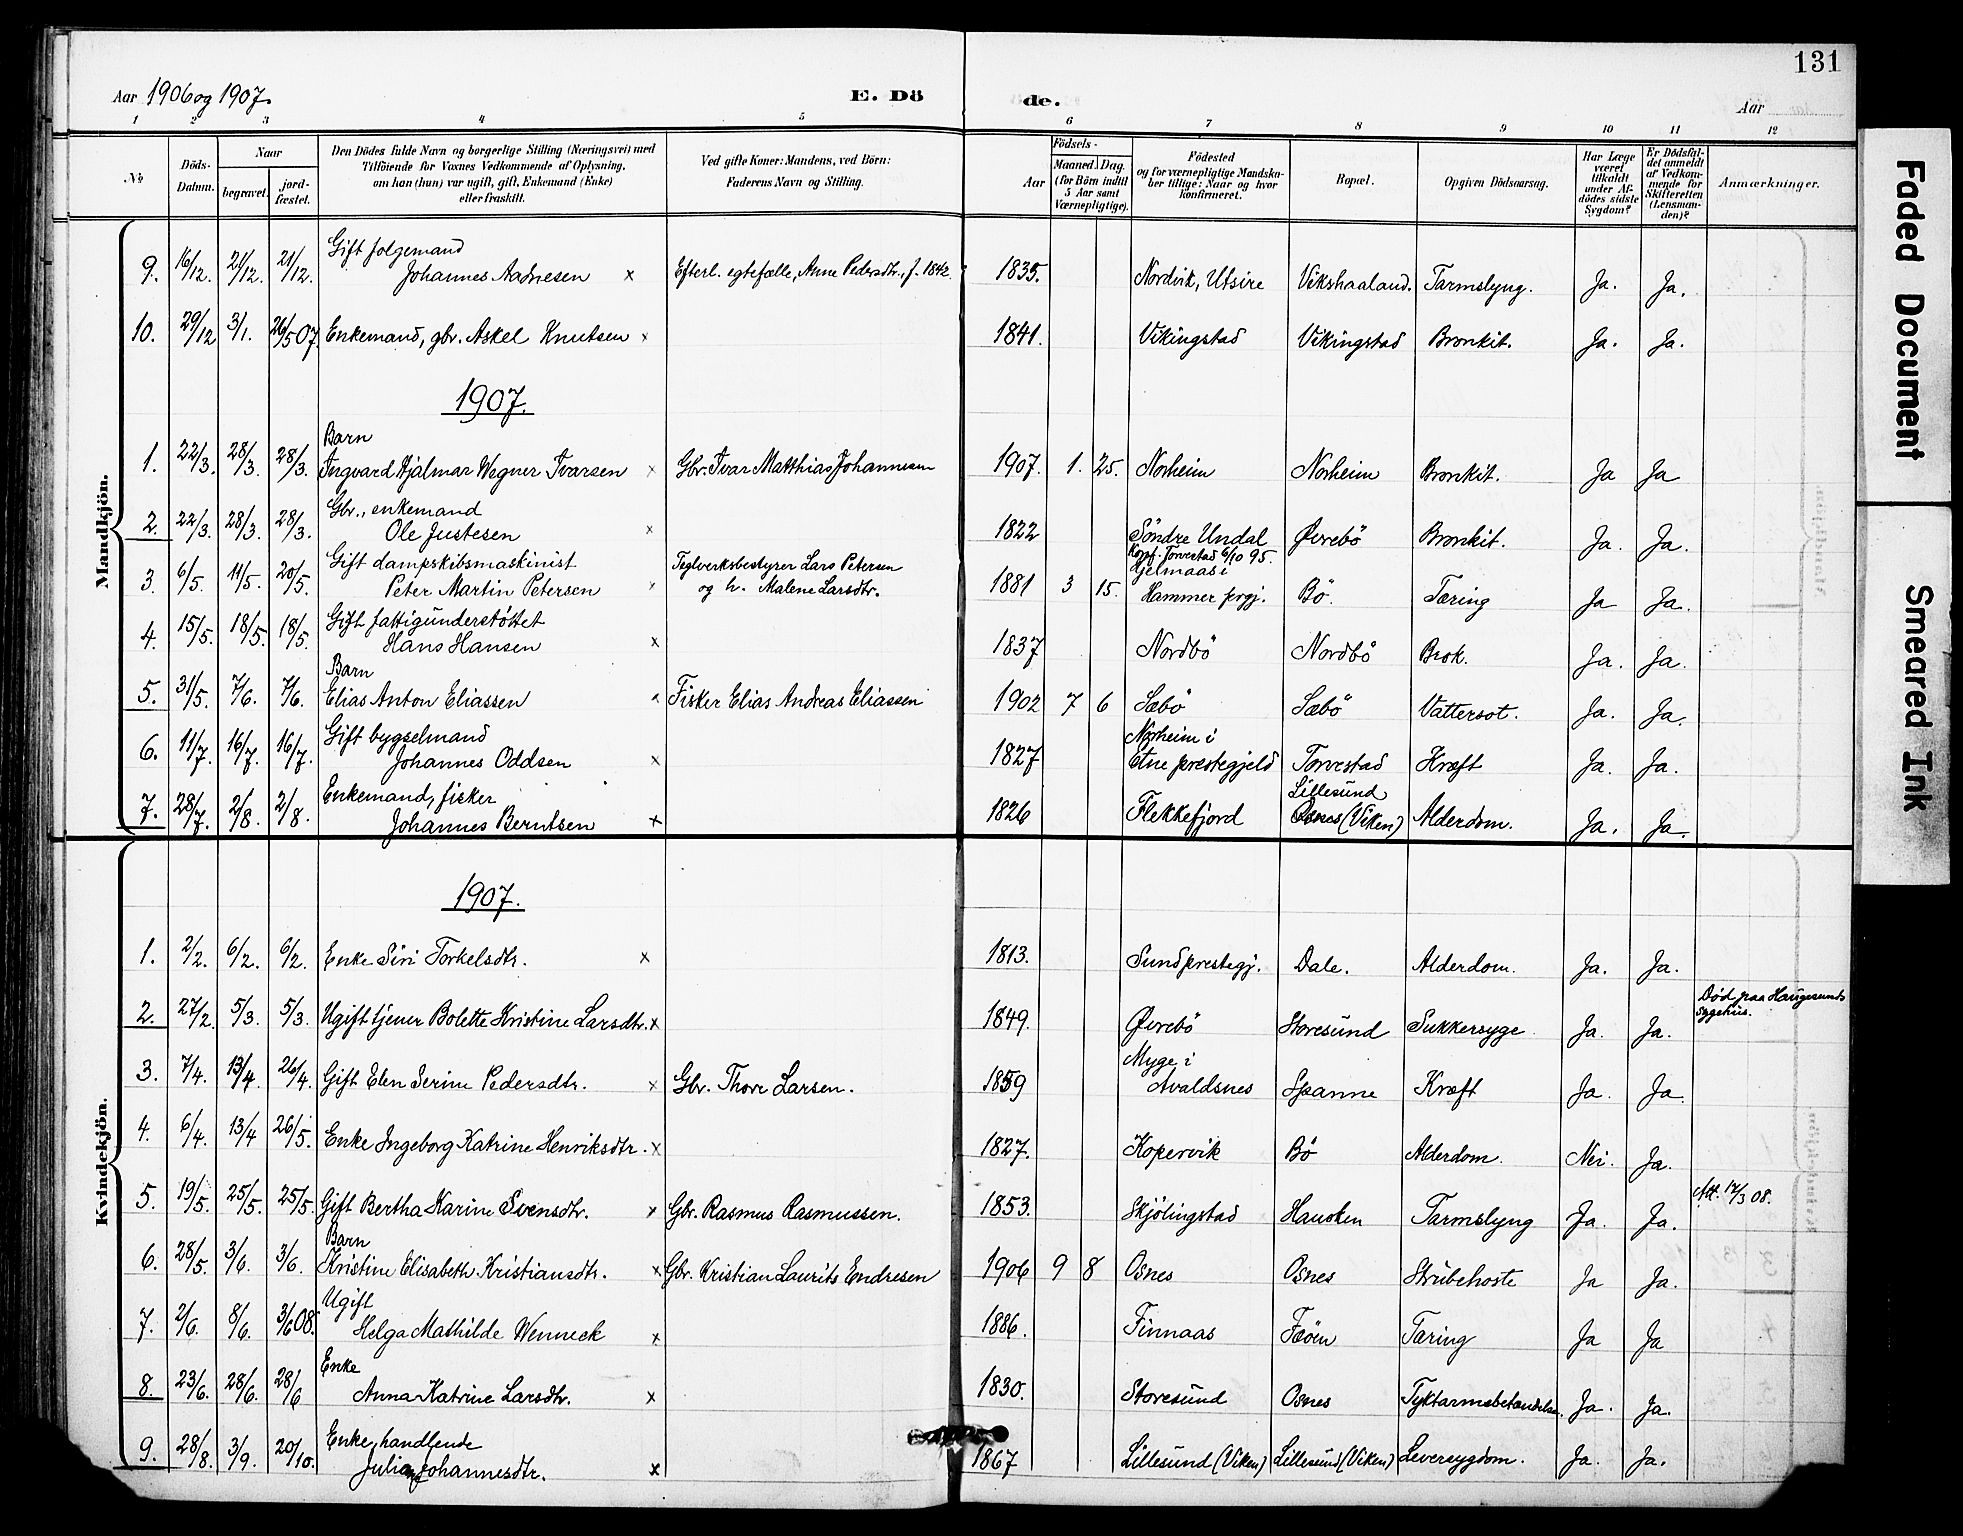 131
Aar 1906 og 1907.
E. Dö
de.
Aar
1 2 3 4 5 6 7 8 9 10 11 12
No
Döds-Datum.
Naar
begravet.
jord-fæstet.
Den Dödes fulde Navn og borgerlige Stilling (Næringsvei) med
Tilföiende for Voxnes Vedkommende af Oplysning,
om han (hun) var ugift, gift, Enkemand (Enke)
eller fraskilt.
Ved gifte Koner: Mandens, ved Börn:
Faderens Navn og Stilling.
Födsels-
Aar
Maaned. Dag.
(for Börn indtil
5 Aar samt
Værnepligtige).
Födested
og for værnepligtige Mandska-
ber tillige: Naar og hvor
konfirmeret.
Bopæl.
Opgiven Dödsaarsag.
Har Læge
været
tilkaldt
under Af-
dödes sidste
Sygdom?
Er Dödsfal-
det anmeldt
af Vedkom-
mende for
Skifteretten
(Lensman-
den)?
Anmærkninger.
Mandkjön.
9. 16/12. 21/12. 21/12. Gift folgemand
Johannes Aadnesen x Efterl. egtefælle, Anne Pedersdtr., f. 1842. 1835. Nordvik, Utsire Vikshaaland. Tarmslyng. Ja. Ja.
10. 29/12 3/1. 26/5 07. Enkemand, gbr. Askel Knutsen x 1841. Vikingstad Vikingstad Bronkit. Ja. Ja.
1907.
1. 22/3. 28/3. 28/3. Barn
Ingvard Hjalmar Wegner Ivarsen x Gbr. Ivar Matthias Johannesen 1907. 1. 25. Norheim Norheim Bronkit. Ja Ja
2. 22/3. 28/3. 28/3. Gbr., enkemand
Ole Justesen x 1822 Söndre Undal Øvrebö Bronkit. Ja. Ja.
3. 6/5. 11/5. 20/5. Gift dampskibsmaskinist
Peter Martin Petersen x Teglverksbestyrer Lars Petersen
og h. Malene Larsdtr. 1881 3 15. Konf. Torvestad 6/10 95.
Hjelmaas i
Hammer prgj. Bö. Tæring Ja Ja.
4. 15/5. 18/5. 18/5. Gift fattigunderstöttet
Hans Hansen x 1837 Nordbö Nordbö Brok. Ja. Ja.
5. 31/5. 7/6. 7/6. Barn
Elias Anton Eliassen x Fisker Elias Andreas Eliassen 1902 7 6 Sæbö Sæbö Vattersot. Ja. Ja.
6. 11/7. 16/7. 16/7. Gift bygselmand
Johannes Oddsen x 1827 Norheim i
Etne prestegjeld Torvestad Kræft Ja. Ja.
7. 28/7. 2/8. 2/8. Enkemand, fisker
Johannes Berntsen x 1826 Flekkefjord Lillesund
Osnes (Viken) Alderdom. Ja. Ja.
Kvindekjön.
1907.
1. 2/2. 6/2. 6/2. Enke Siri Torkelsdtr. x 1813. Sund prestegj. Dale. Alderdom. Ja. Ja.
2. 27/2. 5/3. 5/3. Ugift tjener Bolette Kristine Larsdtr. x 1849. Øvrebö Storesund Sukkersyge. Ja. Ja. Død paa Haugesunds
Sygehus.
3. 7/4. 13/4. 26/4. Gift Elen Serine Pedersdtr. x Gbr. Thore Larsen. 1859 Myge i
Avaldsnes Spanne Kræft Ja. Ja.
4. 6/4. 13/4 26/5. Enke Ingeborg Katrine Henriksdtr. x 1827. Kopervik Bö Alderdom. Nei. Ja.
5. 19/5. 25/5. 25/5. Gift Bertha Karine Svensdtr. x Gbr. Rasmus Rasmussen. 1853. Skjölingstad Hausken Tarmslyng Ja. Ja. Att. 12/3 08.
6. 28/5. 3/6. 3/6. Barn
Kristine Elisabeth Kristiansdtr. x Gbr. Kristian Laurits Endresen 1906 9 8 Osnes Osnes Strubehoste Ja Ja.
7. 2/6. 8/6. 3/6 08. Ugift
Helga Mathilde Wenneck x 1886. Finnaas Fæöen Tæring Ja Ja
8. 23/6. 28/6. 28/6 Enke
Anna Katrine Larsdtr. x 1830. Storesund Osnes Tyktarmsbetændelse. Ja. Ja.
9. 28/8. 3/9. 20/10. Enke, handlende
Juliane Johannesdtr. x 1867 Lillesund (Viken) Lillesund (Viken) Leversygdom. Ja. Ja.
Faded Document
Smeared Ink